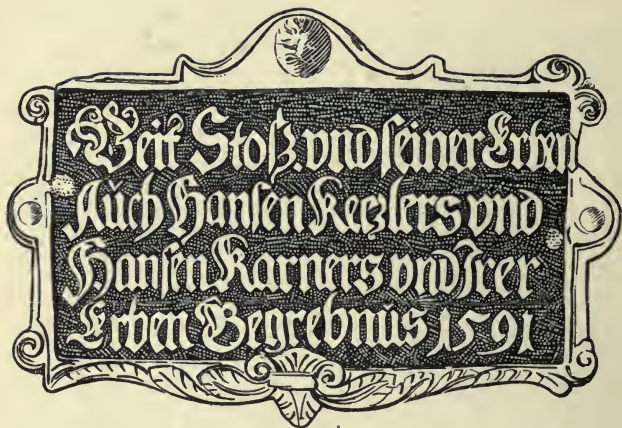 Veit Stoß vnd seiner Erben
Auch Hansen Keczlers vnd
Hansen Karners vnd Irer
Erben Begrebnüs 1591